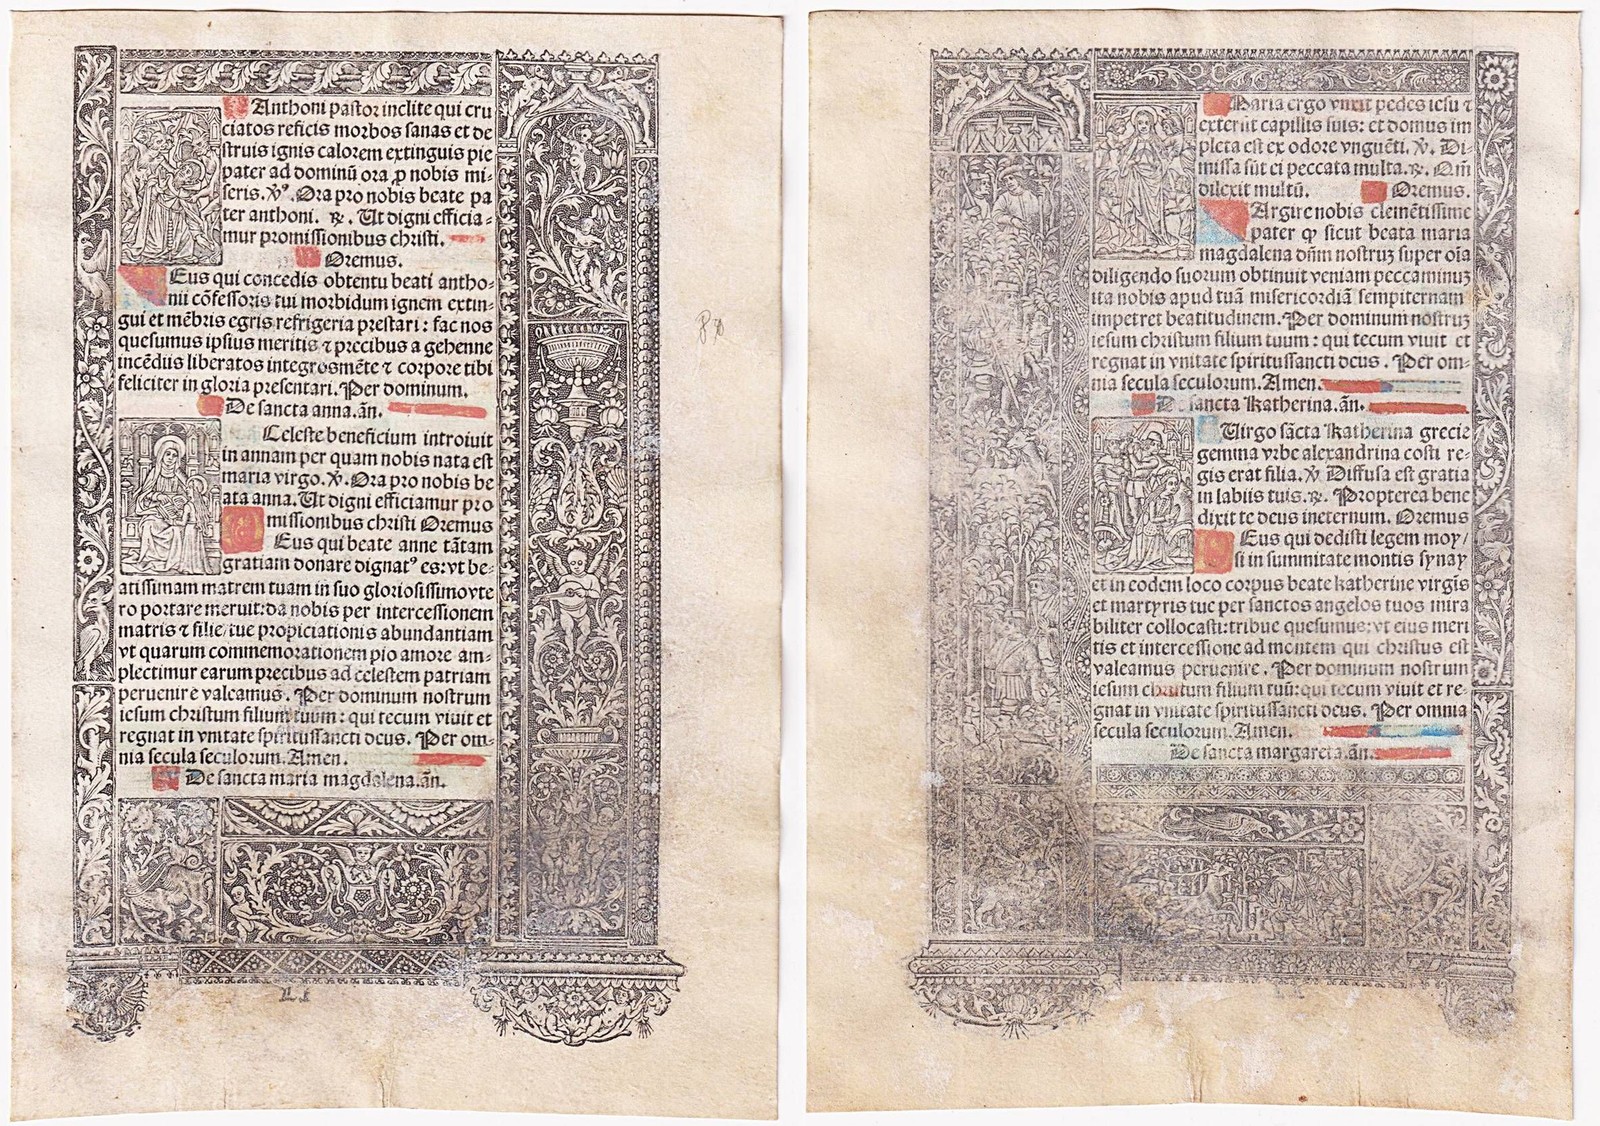 Anthoni pastor inclite qui cru
ciatos reficis morbos sanas et de
struis ignis calorem extinguis pie
pater ad dominū ora ꝓ nobis mi-
seris. ℣ꝰ. Ora pro nobis beate pa
ter anthoni. ℞. Ut digni efficia-
mur promissionibus christi.
Oremus.
Eus qui concedis obtentu beati antho-
nii cōfessoris tui morbidum ignem extin-
gui et mēbris egris refrigeria prestari: fac nos
quesumus ipsius meritis ⁊ precibus a gehenne
incēdiis liberatos integros mēte ⁊ corpore tibi
feliciter in gloria presentari. Per dominum.
De sancta anna. añ.
Celeste beneficium introiuit
in annam per quam nobis nata est
maria virgo. ℣. Ora pro nobis be
ata anna. Ut digni efficiamur pro
missionibus christi Oremus
Eus qui beate anne tātam
gratiam donare dignatꝰ es: vt be-
atissimam matrem tuam in suo gloriosissimo vte
ro portare meruit: da nobis per intercessionem
matris ⁊ filie tue propiciationis abundantiam
vt quarum commemorationem pio amore am-
plectimur earum precibus ad celestem patriam
peruenire valeamus. Per dominum nostrum
iesum christum filium tuum: qui tecum viuit et
regnat in vnitate spiritussancti deus. Per om-
nia secula seculorum. Amen.
De sancta maria magdalena. añ.
Maria ergo vnxit pedes iesu ⁊
extersit capillis suis: et domus im
pleta est ex odore vnguēti. ℣. Di-
missa sūt ei peccata multa. ℞. Qm̄
dilexit multū. Oremus.
Argire nobis clemētissime
pater ꝙ sicut beata maria
magdalena dn̄m nostruꝫ super oīa
diligendo suorum obtinuit veniam peccaminuꝫ
ita nobis apud tuā misericordiā sempiternam
impetret beatitudinem. Per dominum nostruꝫ
iesum christum filium tuum: qui tecum viuit et
regnat in vnitate spiritussancti deus. Per om-
nia secula seculorum. Amen.
De sancta katherina. añ.
Uirgo sācta katherina grecie
gemma vrbe alexandrina costi re-
gis erat filia. ℣. Diffusa est gratia
in labiis tuis. ℞. Propterea bene
dixit te deus ineternum. Oremus
Eus qui dedisti legem moy/
si in summitate montis synay
et in eodem loco corpus beate katherine virgis
et martyris tue per sanctos angelos tuos mira
biliter collocasti: tribue quesumus: vt eius meri
tis et intercessione ad montem qui christus est
valeamus peruenire. Per dominum nostrum
iesum christum filium tuū: qui tecum viuit et re-
gnat in vnitate spiritussancti deus. Per omnia
secula seculorum. Amen.
De sancta margareta. añ.